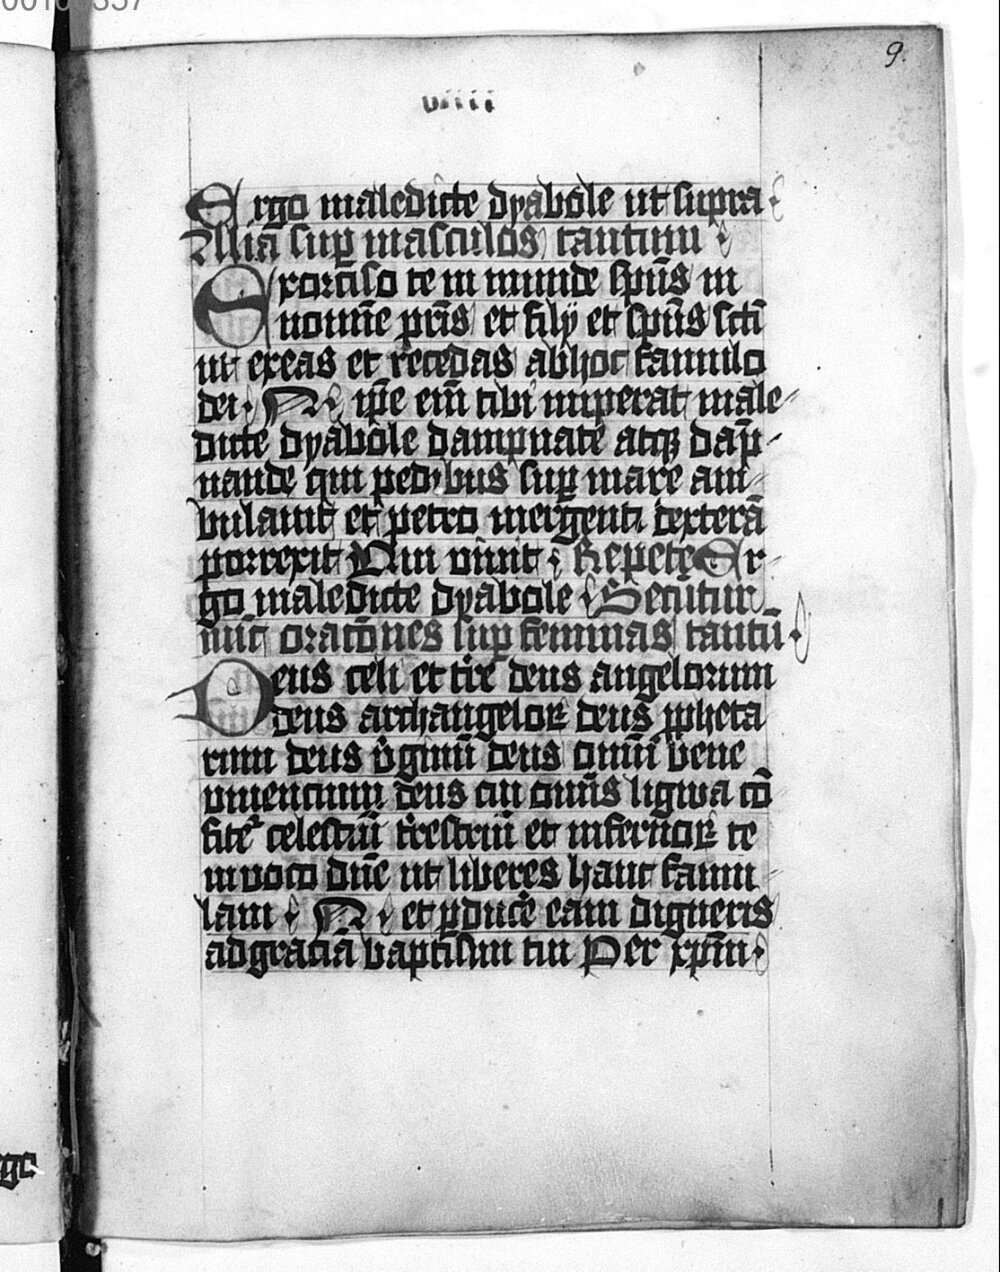 9.
viiii
Ergo maledicte dyabole ut supra
Alia sup masculos tantum
Exorciso te in munde spūs in
nomīe pr̄is et filij et spūs sc̄ti
ut exeas et recedas abhoc famulo
dei · N · ip̄e eīm tibi imperat male-
dicte dyabole dampnate atqꝫ dāp-
nande qui pedybus sup mare am-
bulauit et petro mergenti dexterā
porrexit Qui uiuit · Repete Er-
go maledicte dyabole Secūtur
nūc orac̄ones sup feminas tantū
Deus celi et tr̄e deus angelorum
deus archangeloꝝ deus ꝓpheta
rum deus v̄ginū deus om̄iū bene
uiuencium deus cui om̄is ligwa cō
fitet᷑ celestiū tr̄estriū et infernoꝝ te
inuoco dn̄e ut liberes hanc famu-
lam · N · et ꝑducē eam digneris
ad graciā baptismi tui Per xp̄m